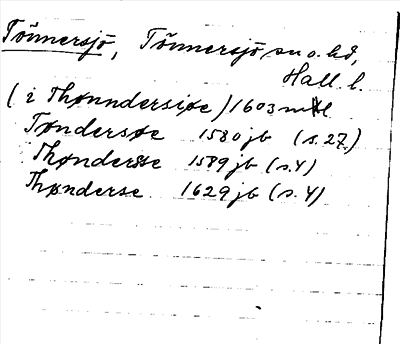 Tönnersjö, Tönnersjö, sn o. hd,
Hall. l.
(i Thønndersiøe) 1603 mtl
Tøndersøe 1580 jb (s.27.)
Thøndersøe 1589 jb (s.4)
Thønderse 1629 jb (s.4)